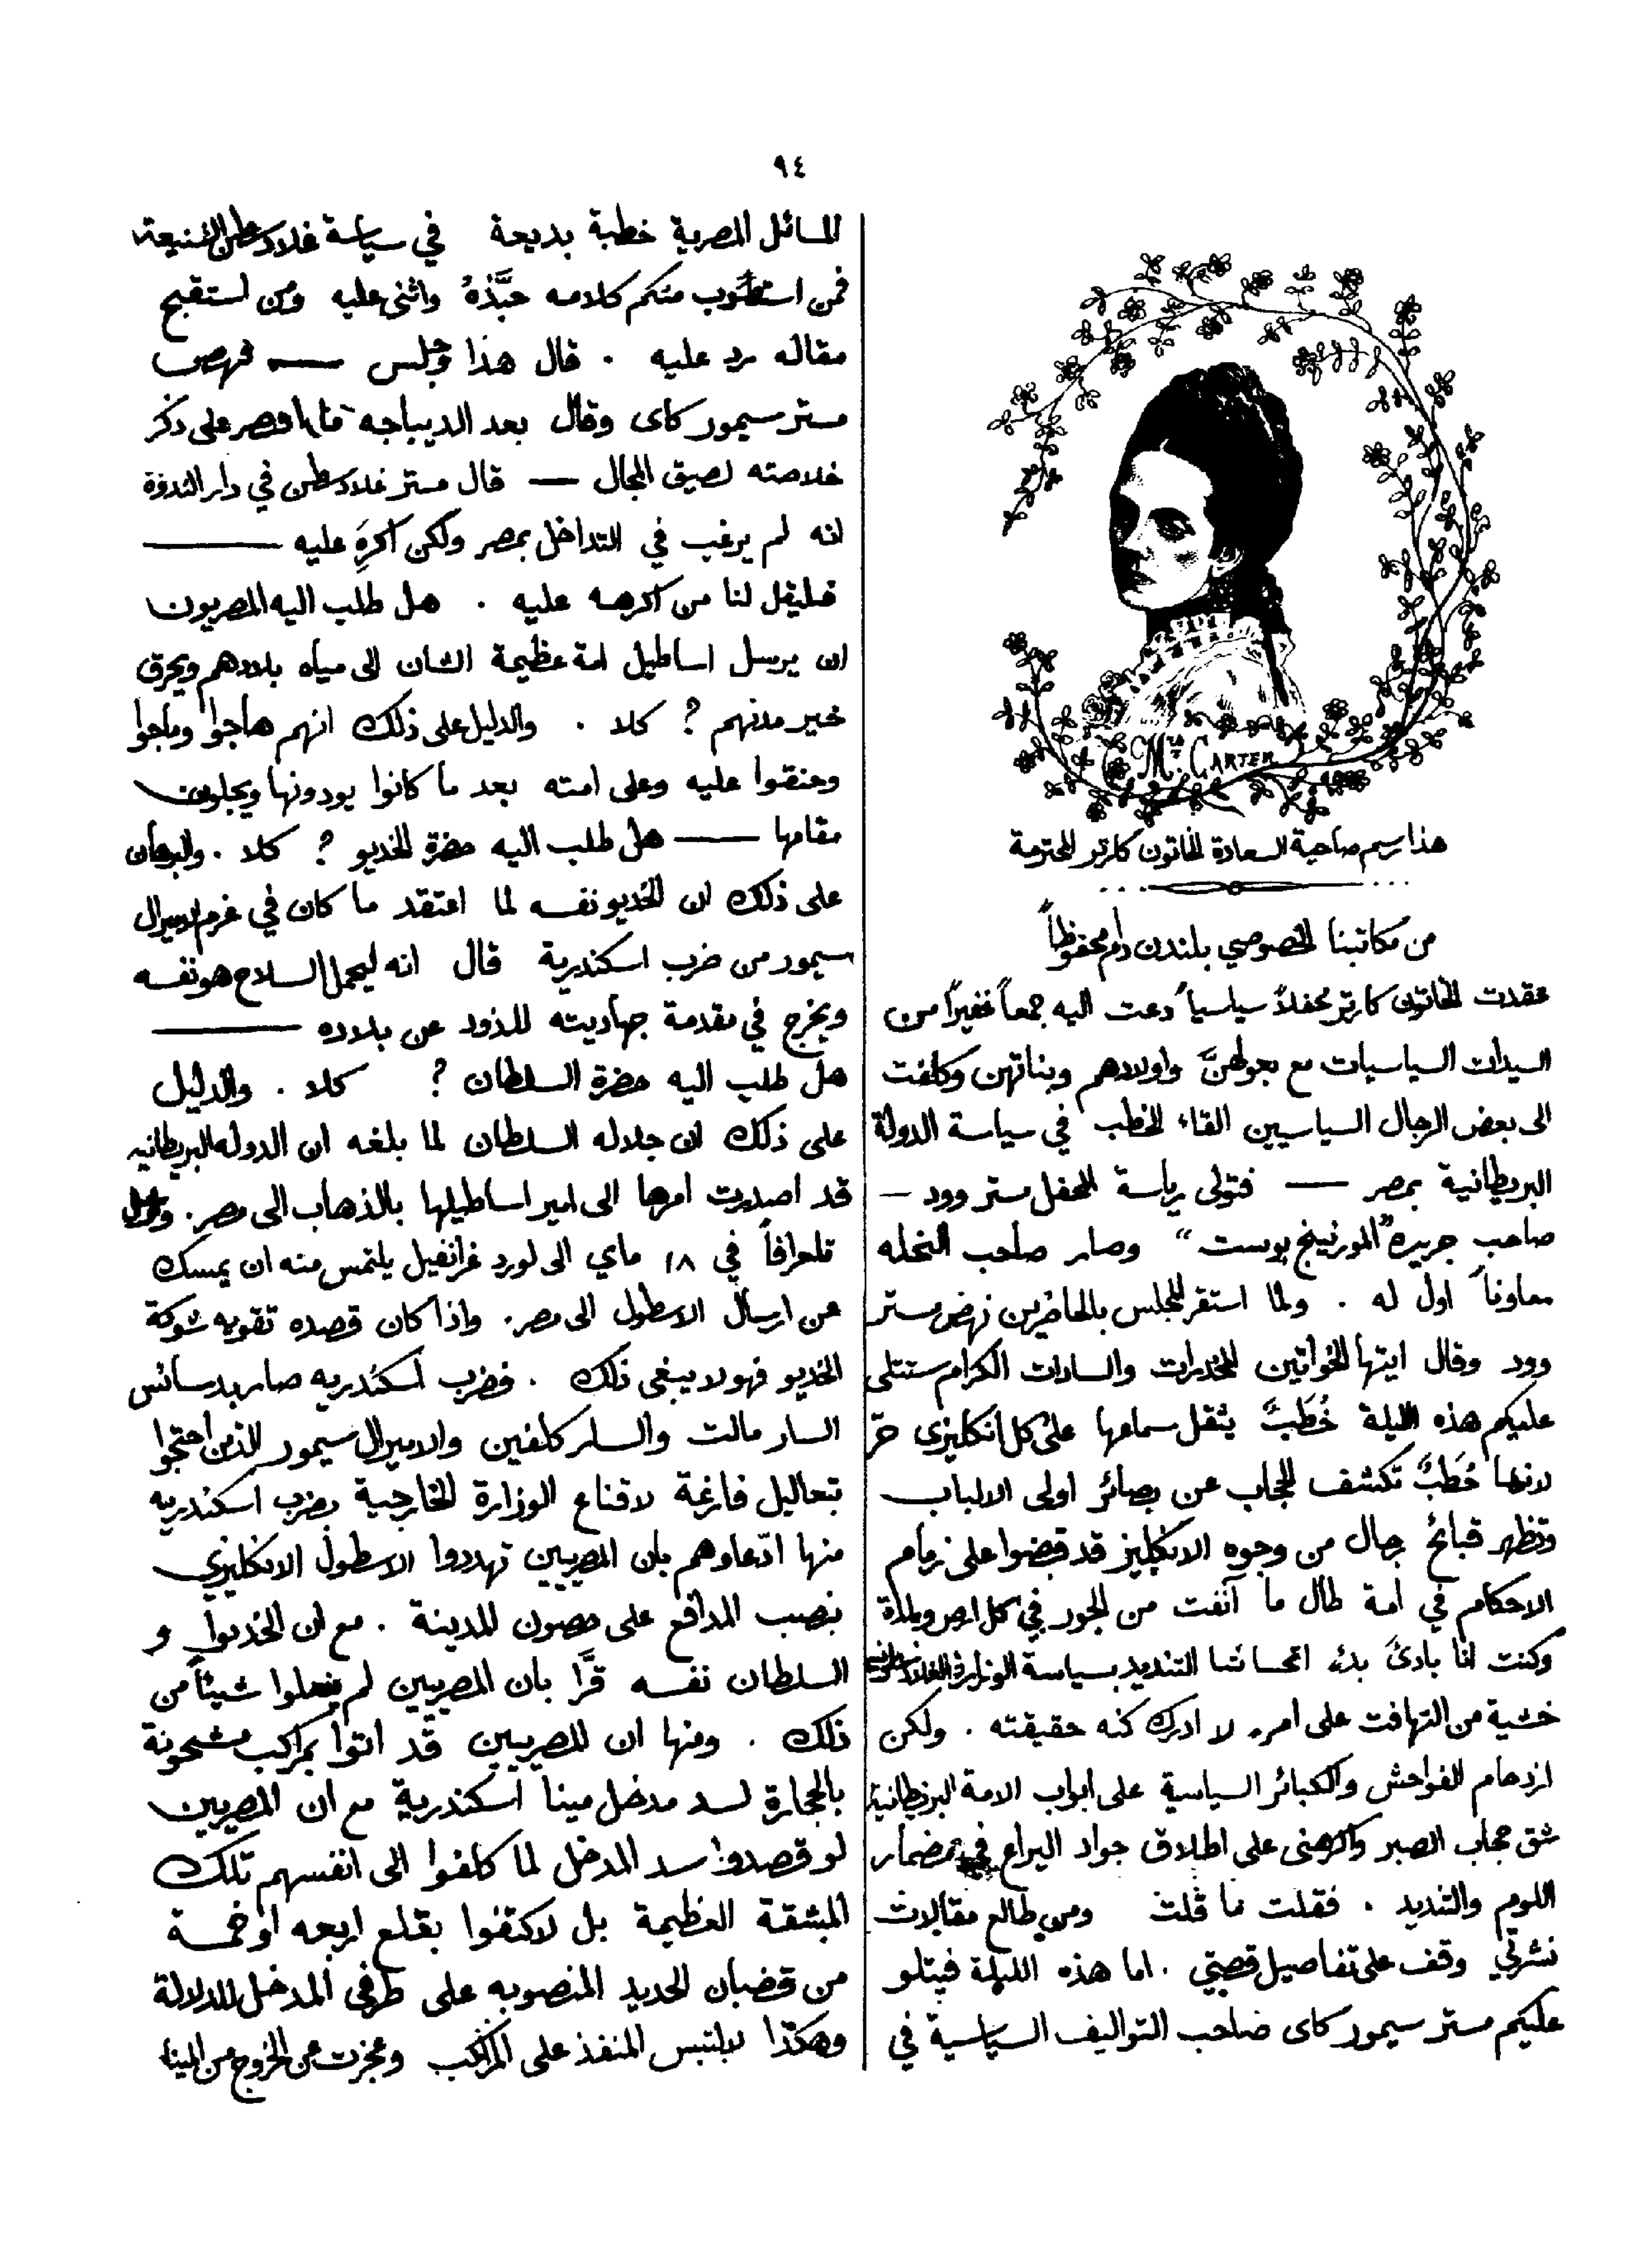 ٩٤
Mrs. CARTER
هذا رسم صاحبة السعادة الخاتون كارتر المحترمة
من مكاتبنا الخصوصي بلندن دام محفوظاً
عقدت الخاتون كارتر محفلاً سياسياً دعت اليه جمعاً غفيراً من
السيدات السياسيات مع بعولهنَّ واولادهم وبناتهن وكلفت
الى بعض الرجال السياسيين القاء الخطب في سياسة الدولة
البريطانية بمصر — فتولى رياسة المحفل مستر وود —
صاحب جريدة "المورنينج بوست" وصار صاحب النحله
معاوناً اول له . ولما استقر المجلس بالحاضرين نهض مستر
وود وقال ايتها الخواتين المخدرات والسادات الكرام ستتلى
عليكم هذه الليلة خُطَبٌ يثقل سماعها على كل انكليزي حرّ
لانها خُطَبٌ تكشف الحجاب عن بصائر اولى الالباب
وتظهر قبائح رجال من وجوه الانكليز قد قبضوا على زمام
الاحكام في امة طال ما آنفت من الجور في كل امر وبلدة
وكنت انا بادئَ بدء اتحاشا التنديد بسياسة الوزارة الغلادسطونيه
خشية من التهافت على امرٍ لا ادرك كنه حقيقته . ولكن
ازدحام الفواحش والكبائر السياسية على ابواب الامة البريطانية
شق حجاب الصبر واكرهنى على اطلاق جواد اليراع في مضمار
اللوم والتنديد . فقلت ما قلت ومن طالع مقالات
نشرتي وقف على تفاصيل قصتي . اما هذه الليلة فيتلو
عليكم مستر سيمور كاى صاحب التواليف السياسية في
المسائل المصرية خطبة بديعة في سياسة غلادسطن الشنيعة
فمن استصوب منكم كلامه حبَّذهُ واثنى عليه ومن استقبح
مقاله رد عليه . قال هذا وجلس — فنهض
مستر سيمور كاى وقال بعد الديباجه ما اقتصر على ذكر
خلاصته لضيق المجال — قال مستر غلادسطن في دار الندوة
انه لم يرغب في التداخل بمصر ولكن اكرِهَ عليه —
فليقل لنا من اكرهه عليه . هل طلب اليه المصريون
ان يرسل اساطيل امة عظيمة الشان الى مياه بلادهم ويحرق
خير مدنهم ? كلا . والدليل على ذلك انهم هاجوا وماجوا
وحنقوا عليه وعلى امته بعد ما كانوا يودونها ويجلون
مقامها — هل طلب اليه حضرة الخديو ? كلا . والبرهان
على ذلك ان الخديو نفسه لما اعتقد ما كان في عزم الاميرال
سيمور من ضرب اسكندرية قال انه ليحمل السلاح هو نفسه
ويخرج في مقدمة جهاديته للذود عن بلاده —
هل طلب اليه حضرة السلطان ? كلا . والدليل
على ذلك ان جلاله السلطان لما بلغه ان الدوله البريطانيه
قد اصدرت امرها الى امير اساطيلها بالذهاب الى مصر .
تلغرافاً في ١٨ ماي الى لورد غرانفيل يلتمس منه ان يمسك
عن ارسال الاسطول الى مصر . واذا كان قصده تقويه شوكة
الخديو فهو لا يبغى ذلك . فضرب اسكندريه صار بدسائس
السار مالت والسار كلفين والاميرال سيمور الذين احتجوا
بتعاليل فارغة لاقناع الوزارة الخارجية بضرب اسكندريه
منها ادّعاوهم بان المصريين تهددوا الاسطول الانكليزي
بنصب المدافع على حصون المدينة . مع ان الخديو و
السلطان نفسه قرَّا بان المصريين لم يفعلوا شيئاً من
ذلك . ومنها ان المصريين قد اتوا بمراكب مشحونة
بالحجارة لسد مدخل مينا اسكندرية مع ان المصريين
لو قصدوا سد المدخل لما كلفوا الى انفسهم تلك
المشقة العظيمة بل لاكتفوا بقلع اربعه او خمسة
من قضبان الحديد المنصوبه على طرفي المدخل للدلالة
وهكذا لالتبس المنفذ على المراكب وعجزت عن الخروج من المينا